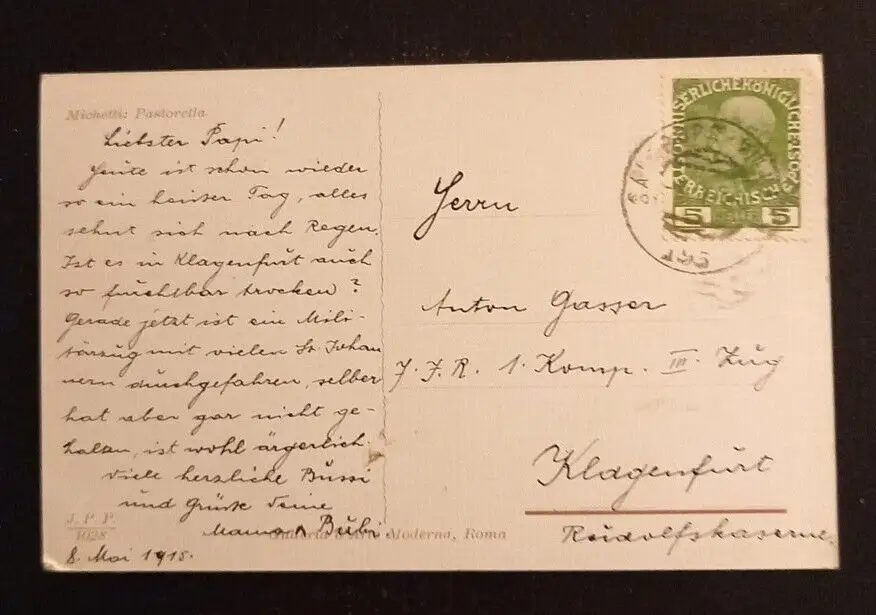 Michetti: Pastorella
Liebster Papi!
Heute ist schon wieder
so ein heisser Tag, alles
sehnt sich nach Regen.
Ist es in Klagenfurt auch
so furchtbar trocken?
Gerade jetzt ist ein Mili-
tärzug mit vielen St. Johan
nern durchgefahren, selber
hat aber gar nicht ge-
halten, ist wohl ärgerlich.
Viele herzliche Bussi
und Grüsse deine
Mama Bubi.
8. Mai 1915.
J. P. P.
1028
Moderna, Roma
KAISERLICHE KÖNIGLICHE
ÖSTERREICHISCHE POST
5 5
195
Herrn
Anton Gasser
J. J. R. 1. Komp. III. Zug
Klagenfurt
Rudolfskaserne.